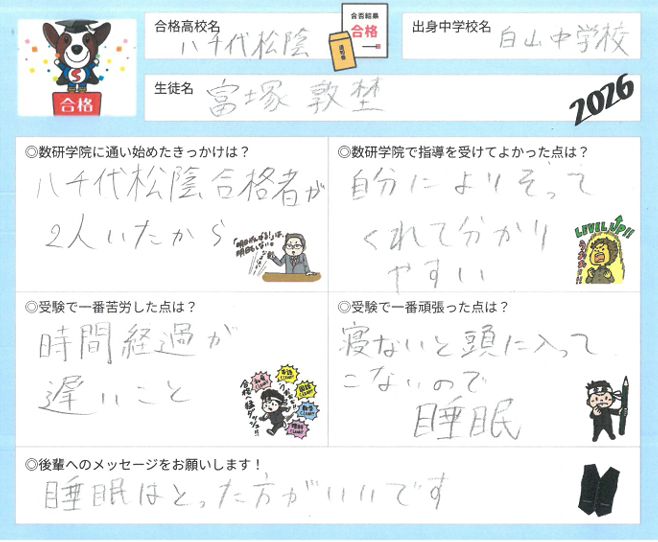 合格高校名
八千代松陰
合否結果
合格
通知書
出身中学校名
白山中学校
S
合格
生徒名
富塚 敦埜
2026
◎数研学院に通い始めたきっかけは？
八千代松陰合格者が
2人いたから
「明日がんばる!」は、
明日もいない。
◎数研学院で指導を受けてよかった点は？
自分によりそって
くれて分かり
やすい
LEVEL UP!!
◎受験で一番苦労した点は？
時間経過が
遅いこと
◎受験で一番頑張った点は？
寝ないと頭に入って
こないので
睡眠
◎後輩へのメッセージをお願いします！
睡眠はとった方がいいです